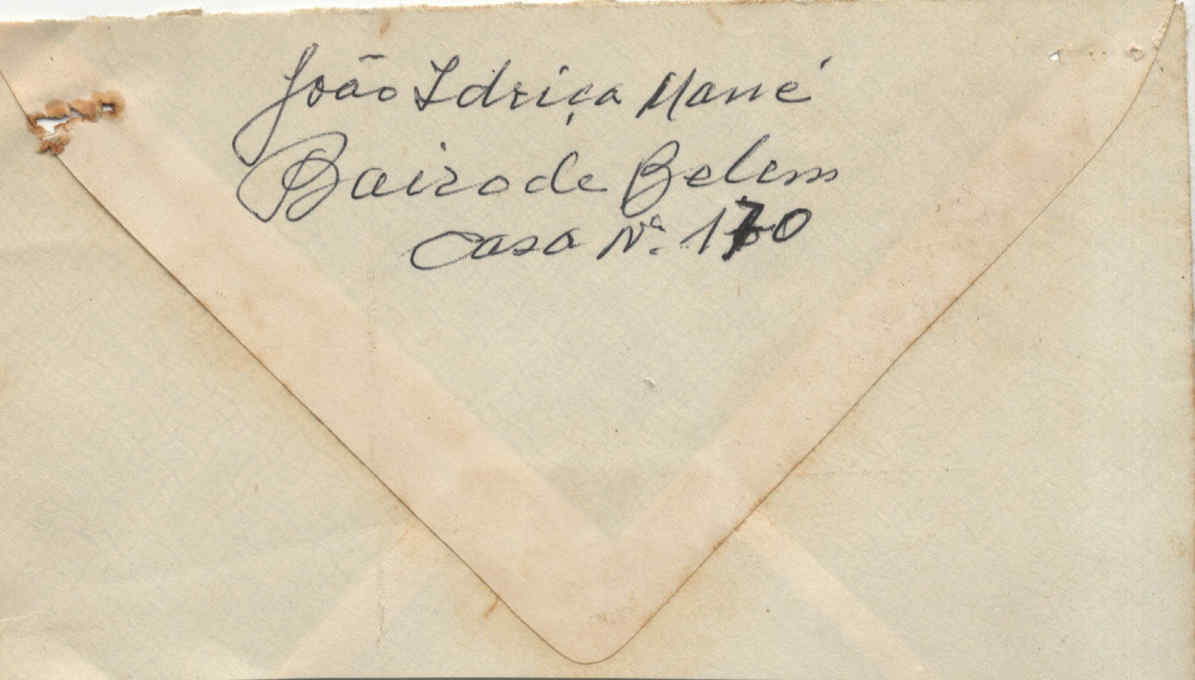 João Idriça Mané
Bairo de Belem
Casa Nº. 170